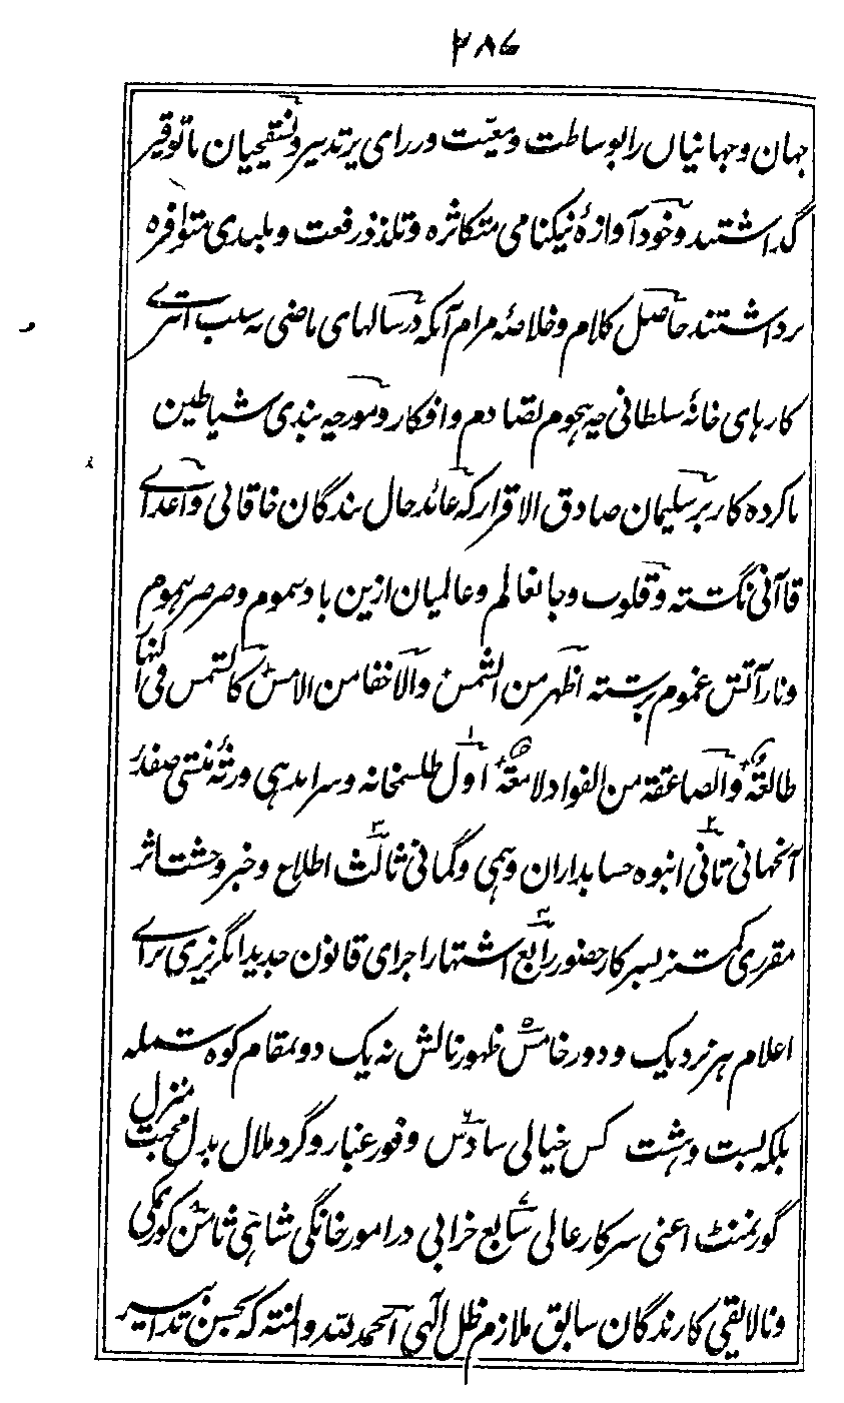 ۲۸۶
جهان و جهانیان را بوساطت و معیت و ررای پر تدبیر دستقیحیان ماتوقیر
گداشتند و خود آوازهٔ نیکنامی متکاثره و تلذذ رفعت و بلندی متوافره
برداشتند حاصل کلام و خلاصهٔ مرام آنکه در سالهای ماضی نه سبب ابتری
کارهای خانهٔ سلطانی چه هجوم تصادم و افکار و مورچه بندی شیاطین
ناکرده کار بر سلیمان صادق الاقرار که عائد حال بندگان خاقانی و اعدای
قاآنی نگشته و قلوب و جانعالم و عالمیان ازین باد سموم و صرصر هموم
و نار آتش غموم برشته اظهر من الشمس والاخفا من الامس کالشمس فی النهار
طالعة والصاعقة من الفواد لامعة اول طلسمخانه و سرامدهی ورثهٔ منشی صفدر
آنجهانی ثانی انبوه حسابداران وهمی و گمانی ثالث اطلاع و خبر وحشت اثر
مقرری کمشنر بسرکار حضور رابع اشتهار اجرای قانون جدید انگریزی برای
اعلام هر نزدیک و دور خامس ظهور نالش نه یک دو بمقام کوه شمله
بلکه بست و هشت کس خیالی سادس وفور غبار و گرد ملال بدل محبت منزل
گورنمنٹ اعنی سرکار عالی سابع خرابی در امور خانگی شاهی ثامن کورنمکی
و نالائقی کارندگان سابق ملازم ظل الهی الحمد لله والمنته که بحسن تدابیر